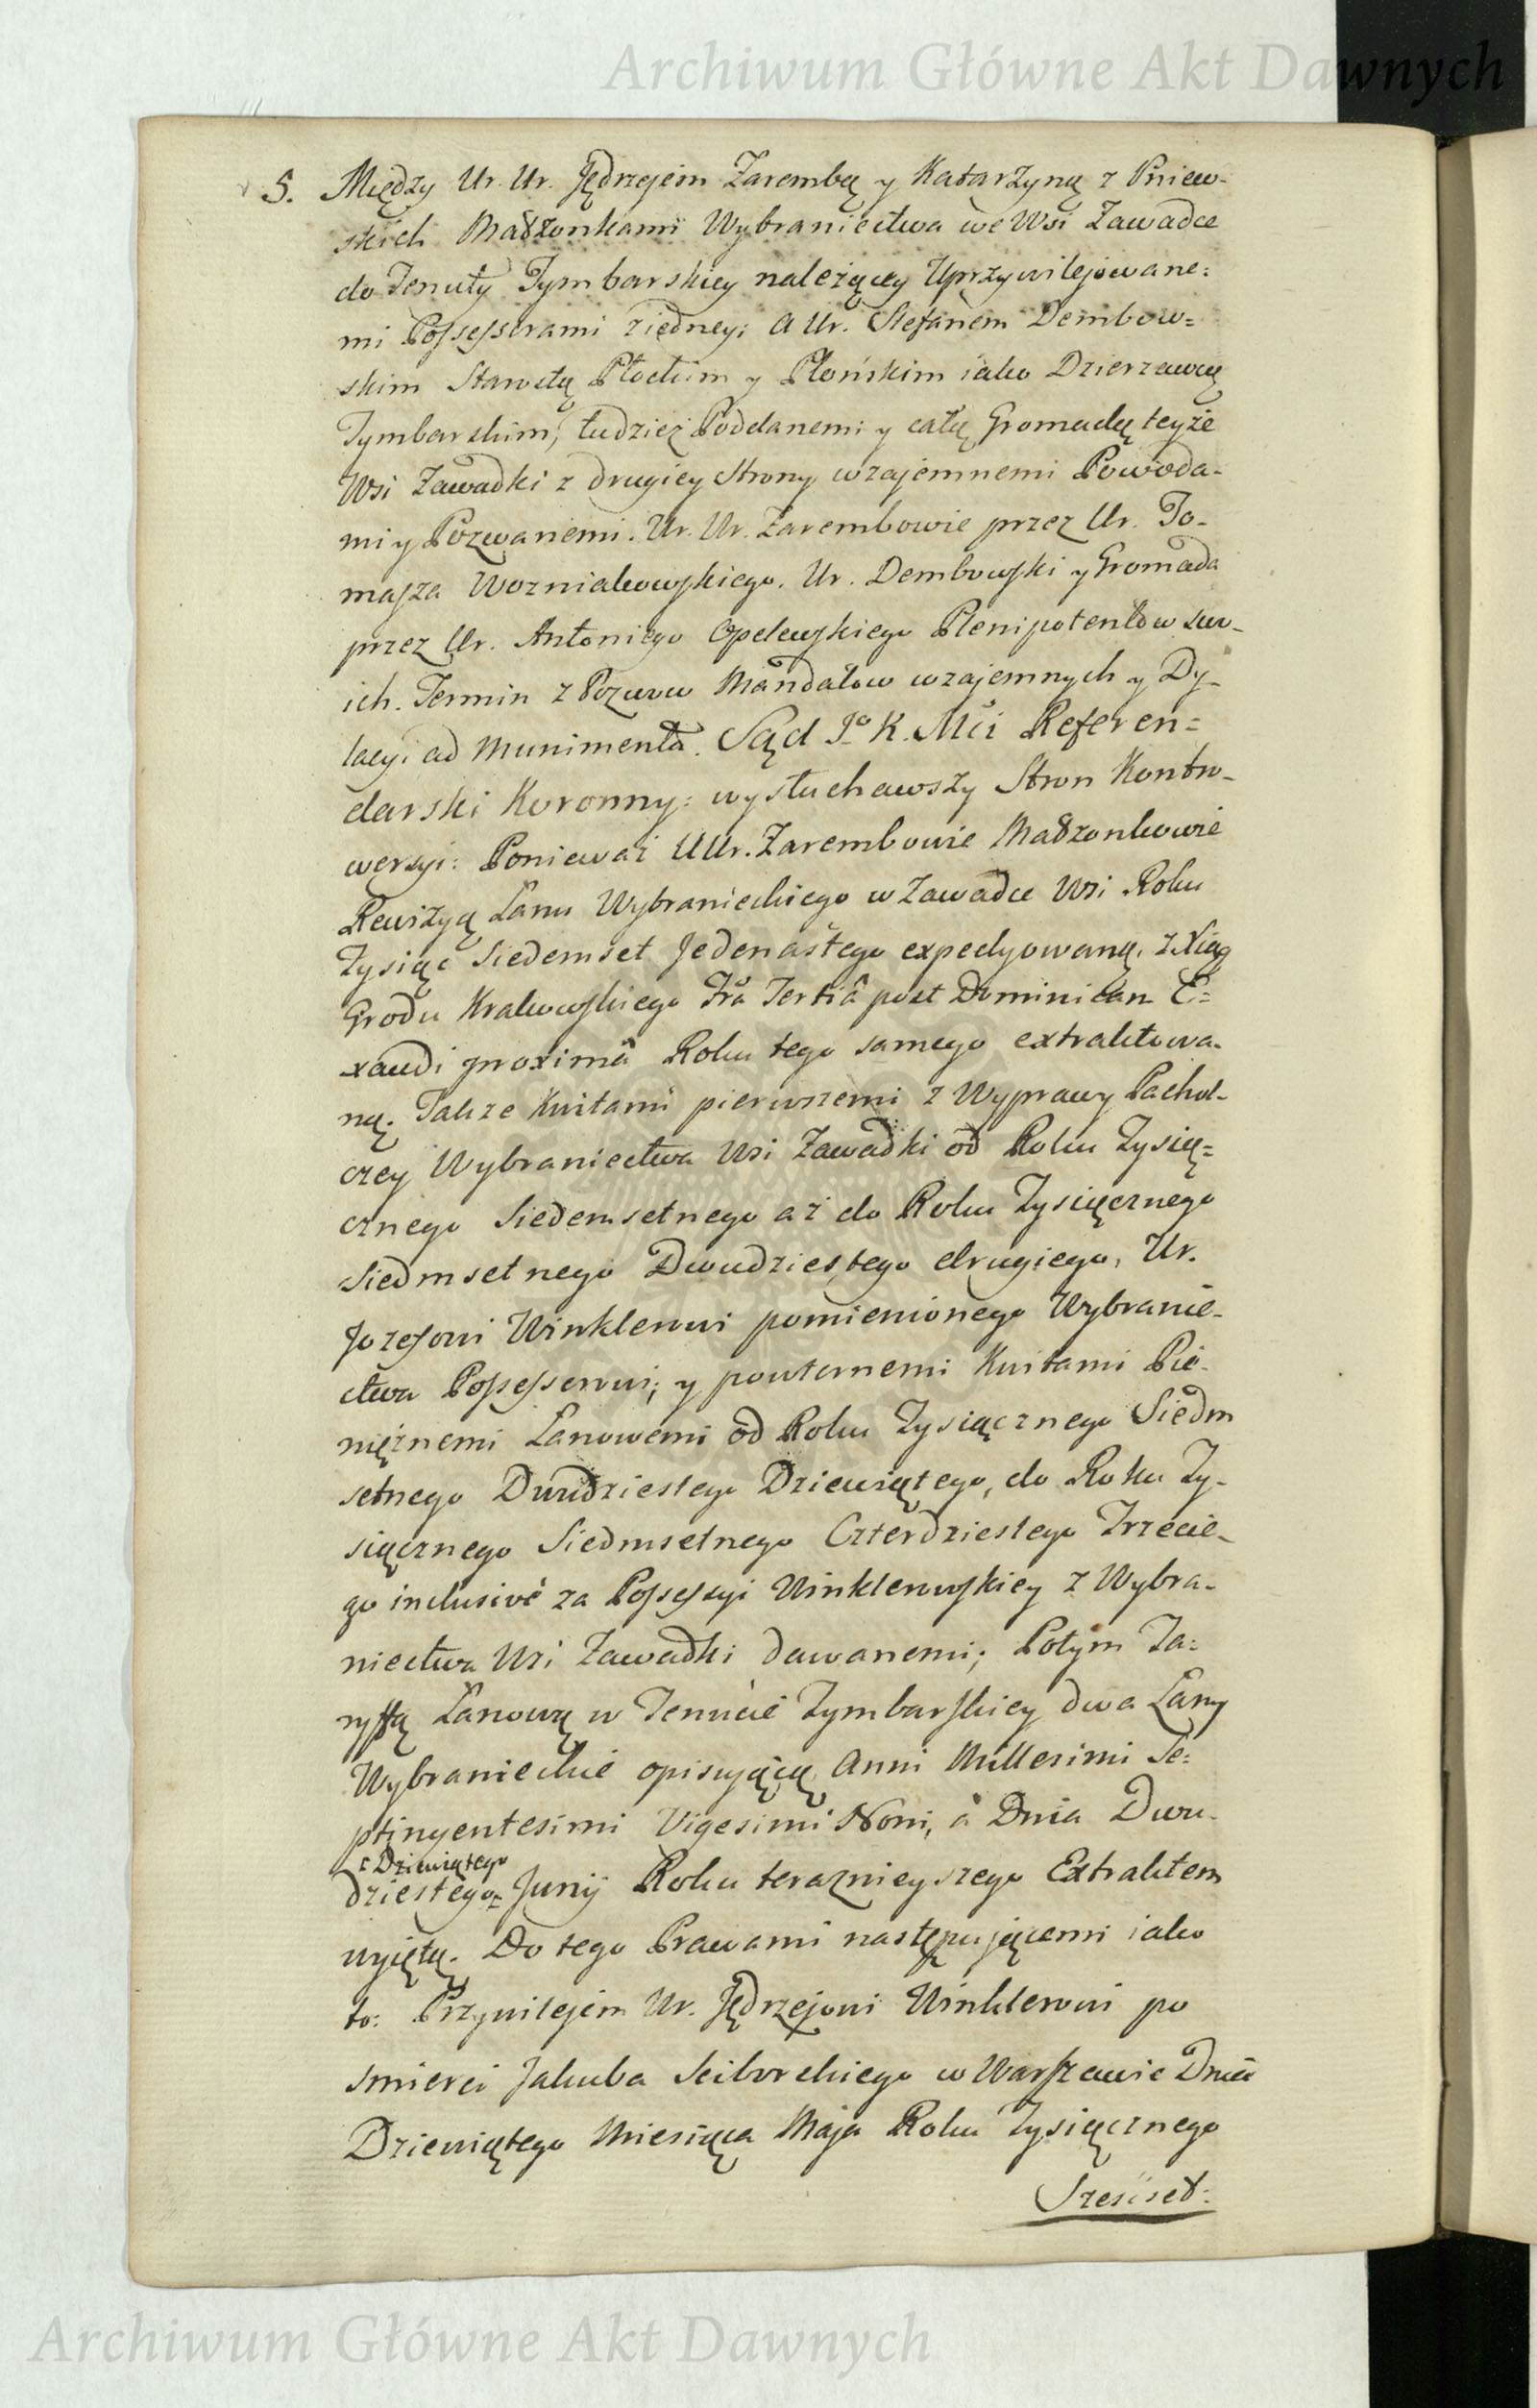 Archiwum Główne Akt Dawnych
5. Między Ur. Ur. Jędrzejem Zarembą y Katarzyną z Pniew-
skich Małżonkami Wybraniectwa we Wsi Zawadce
do Tenuty Tymbarskiey należącey Uprzywilejowane=
mi Possessorami z iedney; a Ur. Stefanem Dembow=
skim Starostą Płockim y Płońskim iako Dzierzawcą
Tymbarskim, tudziez Poddanemi y całą Gromadą teyże
Wsi Zawadki z drugiey Strony wzajemnemi Powoda-
mi y Pozwanemi. Ur. Ur. Zarembowie przez Ur. To-
masza Wozniakowskiego. Ur. Dembowski y Gromada
przez Ur. Antoniego Opelewskiego Plenipotentow swo-
ich. Termin z Pozwow Mandatow wzajemnych y Dy-
lacyi ad munimenta. Sąd Jo K. Mći Referen=
darski Koronny: wysłuchawszy Stron Kontro-
wersyi: Poniewaz UUr. Zarembowie Małżonkowie
Rewizyą Łanu Wybranieckiego w Zawadce Wsi Roku
Tysiąc Siedemset Jedenastego expedyowaną, z Xiąg
Grodu Krakowskiego Fra Tertiâ post Dominicam E=
xaudi proximâ Roku tego samego extraktowa-
ną. Takze Kwitami pierwszemi z Wyprawy Pachoł-
czey Wybraniectwa Wsi Zawadki od Roku Tysią=
cznego Siedemsetnego az do Roku Tysiącznego
Siedmsetnego Dwudziestego drugiego, Ur.
Jozefowi Winklerowi pomienionego Wybranie-
ctwa Possessorowi; y powtornemi Kwitami Pie-
niężnemi Łanowemi od Roku Tysiącznego Siedm
setnego Dwudziestego Dziewiątego, do Roku Ty-
siącznego Siedmsetnego Czterdziestego Trzecie-
go inclusivè za Possessyi Winklerowskiey z Wybra-
niectwa Wsi Zawadki dawanemi; Potym Ta=
ryffą Łanową w Tenucie Tymbarskiey dwa Łany
Wybranieckie opisującą Anni Millesimi Se=
ptingentesimi Vigesimi Noni, à Dnia Dwu-
Dziewiątego
dziestego Junij Roku teraznieyszego Extraktem
wyiętą. Do tego Prawami następującemi iako
to: Przywilejem Ur. Jędrzejowi Winklerowi po
smierci Jakuba Sciborskiego w Warszawie Dnia
Dziewiątego Miesiąca Maja Roku Tysiącznego
Szescset:
Archiwum Główne Akt Dawnych